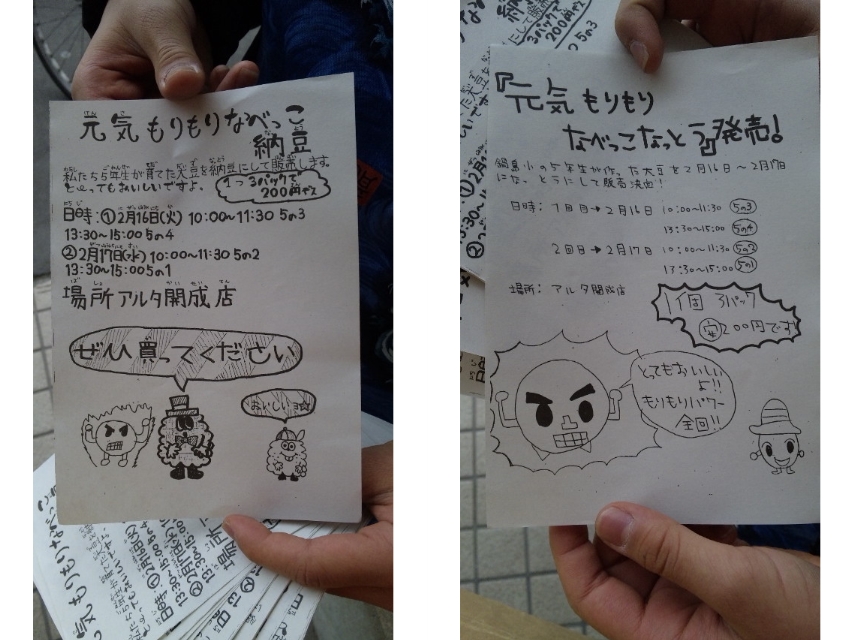 元気もりもりなべっこ
納豆
私たち5年生が育てた大豆を納豆にして販売します。
とってもおいしいですよ。
1つ3パックで
200円やス
日時:①2月16日(火) 10:00～11:30 5の3
13:30～15:00 5の4
②2月17日(水) 10:00～11:30 5の2
13:30～15:00 5の1
場所アルタ開成店
ぜひ買ってください
おいしいヨ☆
『元気もりもり
なべっこなっとう』発売!
鍋島小の5年生が作った大豆を2月16日～2月17日
になっとうにして販売決定!
日時: 1回目→2月16日 10:00～11:30 5の3
13:30～15:00 5の4
2回目→2月17日 10:00～11:30 5の2
13:30～15:00 5の1
場所: アルタ開成店
1個 3パック
安200円です
とってもおいしい
よ!!
もりもりパワー
全回!!